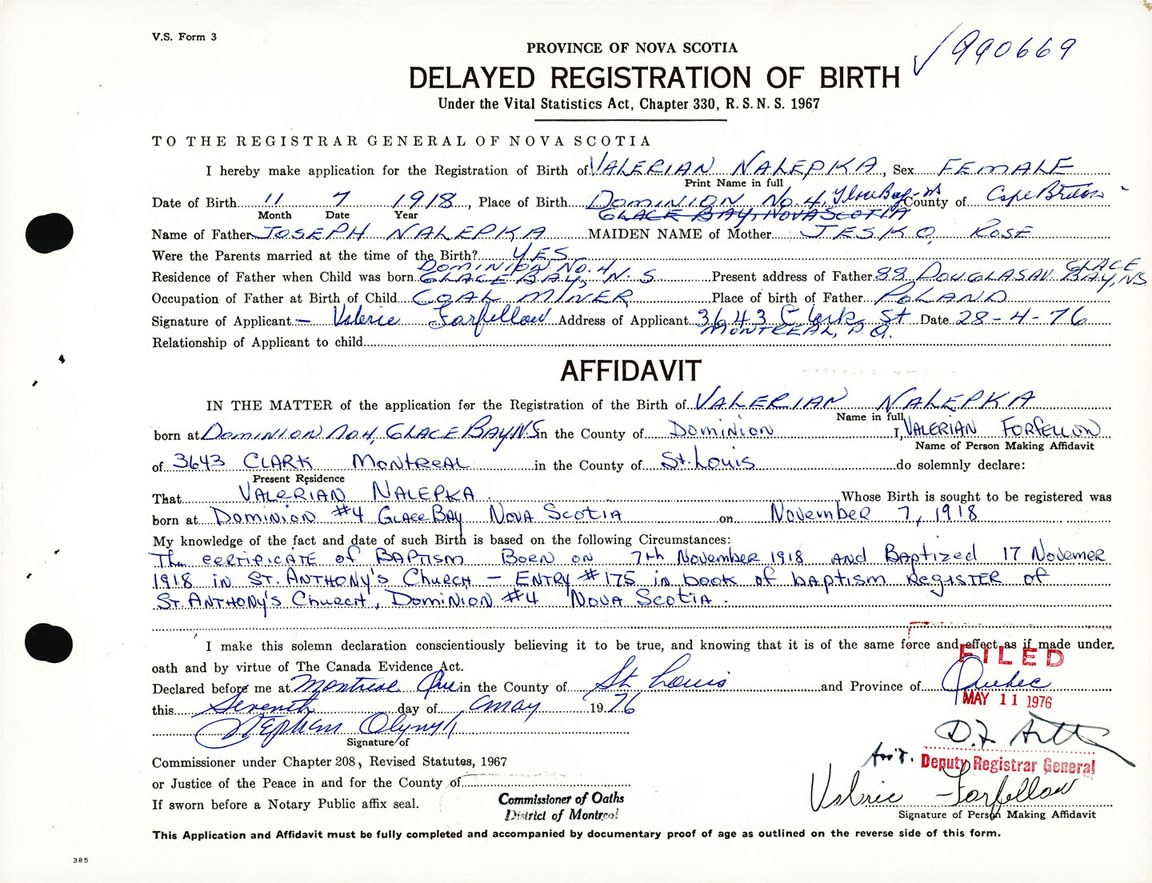 V.S. Form 3
PROVINCE OF NOVA SCOTIA
✓990669
DELAYED REGISTRATION OF BIRTH
Under the Vital Statistics Act, Chapter 330, R.S.N.S. 1967
TO THE REGISTRAR GENERAL OF NOVA SCOTIA
I hereby make application for the Registration of Birth of VALERIAN NALEPKA, Sex FEMALE
Print Name in full
Date of Birth 11 7 1918, Place of Birth DOMINION No. 4, Glace Bay County of Cape Breton
GLACE BAY, NOVA SCOTIA
Month Date Year
Name of Father JOSEPH NALEPKA MAIDEN NAME of Mother JESKO, ROSE
Were the Parents married at the time of the Birth? YES
Residence of Father when Child was born DOMINION No. 4 GLACE BAY, N.S Present address of Father 88 DOUGLAS AV. GLACE BAY, NS
Occupation of Father at Birth of Child COAL MINER Place of birth of Father POLAND
Signature of Applicant – Valerie Forfellow Address of Applicant 3643 Clark St Date 28-4-76
MONTREAL, P.Q.
Relationship of Applicant to child
AFFIDAVIT
IN THE MATTER of the application for the Registration of the Birth of VALERIAN NALEPKA
Name in full
born at DOMINION No 4, GLACE BAY NS in the County of DOMINION I, VALERIAN FORFELLOW
Name of Person Making Affidavit
of 3643 CLARK MONTREAL in the County of St. Louis do solemnly declare:
Present Residence
That VALERIAN NALEPKA. Whose Birth is sought to be registered was
born at DOMINION #4 GLACE BAY NOVA SCOTIA on November 7, 1918
My knowledge of the fact and date of such Birth is based on the following Circumstances:
The CERTIFICATE of BAPTISM BORN ON 7th November 1918 AND Baptized 17 Novemer
1918 in ST. ANTHONY'S Church – ENTRY #175 in book of baptism REGISTER of
ST. ANTHONY'S Church, DOMINION #4 NOVA SCOTIA.
I make this solemn declaration conscientiously believing it to be true, and knowing that it is of the same force and effect as if made under
oath and by virtue of The Canada Evidence Act.
FILED
Declared before me at Montreal Que in the County of St. Louis and Province of Quebec
MAY 11 1976
this Seventh day of May 1976
Stephen Olynyk
Signature of
Commissioner under Chapter 208, Revised Statutes, 1967
Deputy Registrar General
or Justice of the Peace in and for the County of
Valerie Forfellow
If sworn before a Notary Public affix seal.
Commissioner of Oaths
District of Montreal
Signature of Person Making Affidavit
This Application and Affidavit must be fully completed and accompanied by documentary proof of age as outlined on the reverse side of this form.
385